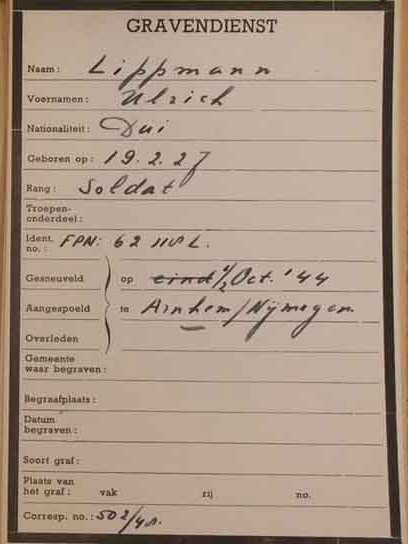 GRAVENDIENST
Naam: Lippmann
Voornamen: Ulrich
Nationaliteit: Dui
Geboren op: 19.2.27
Rang: Soldat
Troepen-
onderdeel:
Ident. no.: FPN: 62
Gesneuveld op eind 1/2 Oct. '44
Aangespoeld te Arnhem/Nijmegen
Overleden
Gemeente
waar begraven:
Begraafplaats:
Datum
begraven:
Soort graf:
Plaats van
het graf: vak rij no.
Corresp. no.: 502/48.